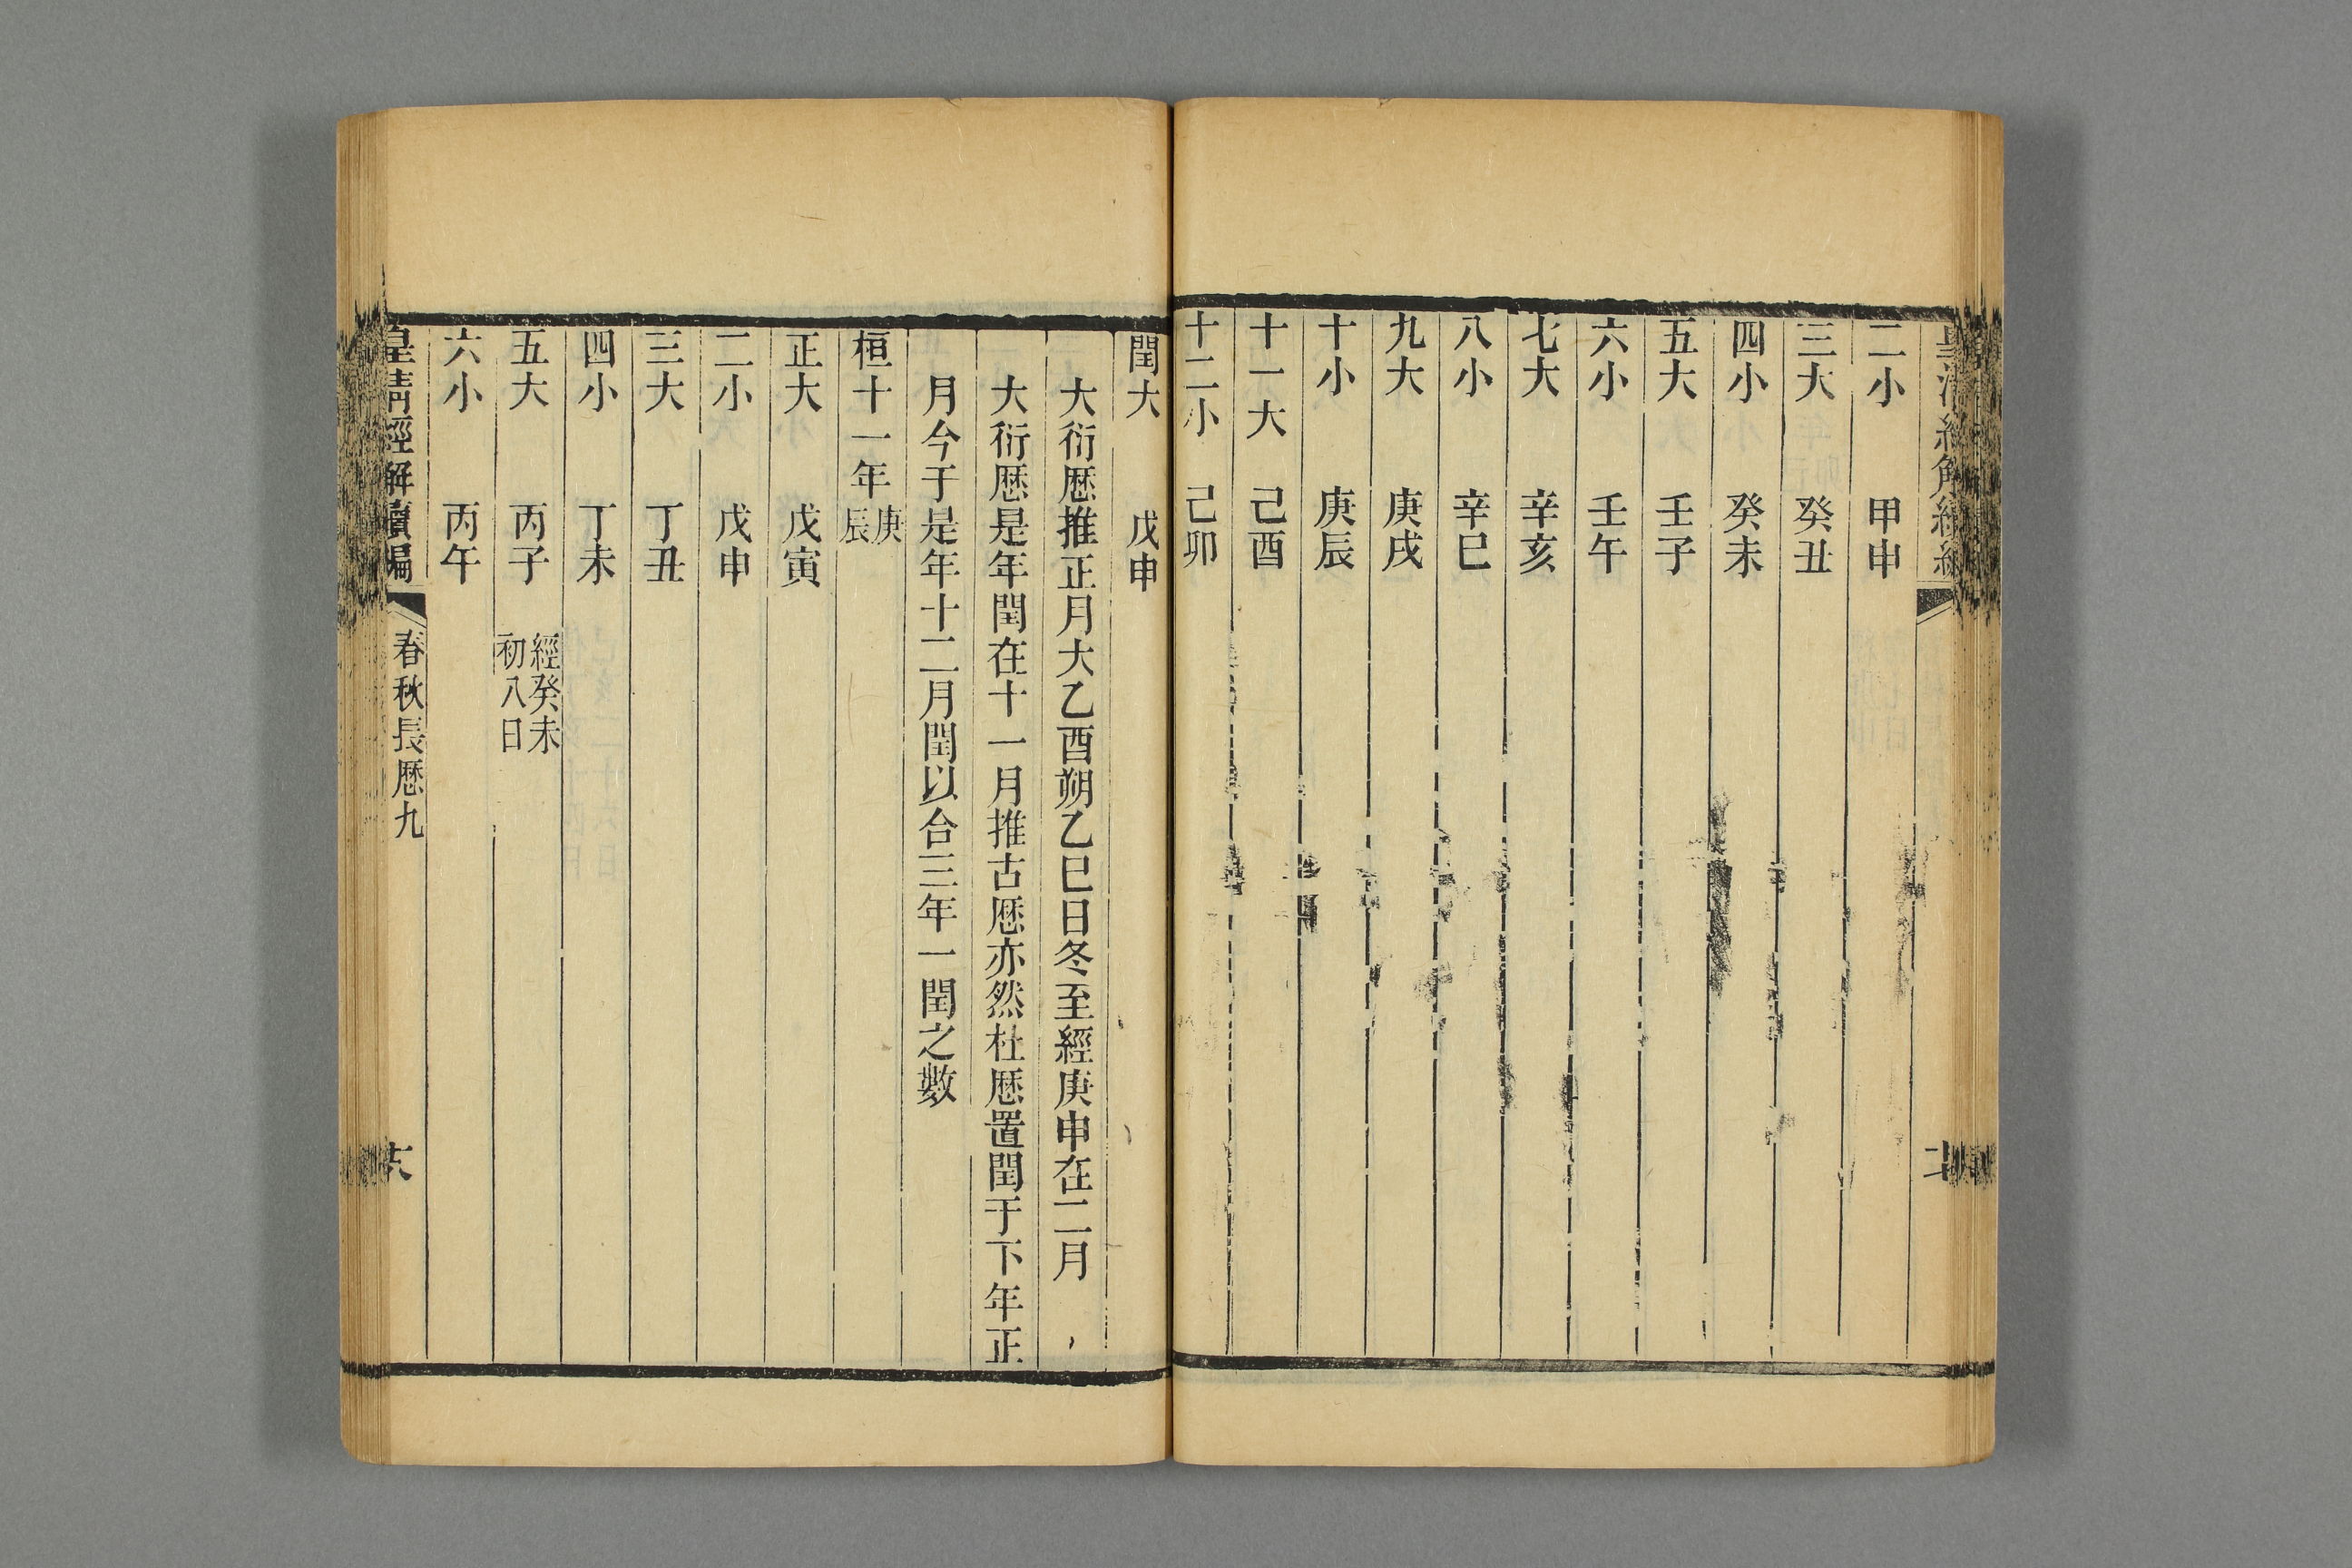 二小　甲申
三大　癸丑
四小　癸未
五大　壬子
六小　壬午
七大　辛亥
八小　辛巳
九大　庚戌
十小　庚辰
十一大　己酉
十二小　己卯
閏大　戊申
大衍厯推正月大乙酉朔乙巳日冬至經庚申在二月
大衍厯是年閏在十一月推古厯亦然杜厯置閏于下年正
月今于是年十二月閏以合三年一閏之數
桓十一年庚辰
正大　戊寅
二小　戊申
三大　丁丑
四小　丁未
五大　丙子　經癸未初八日
六小　丙午
皇清經解續編　春秋長厯九